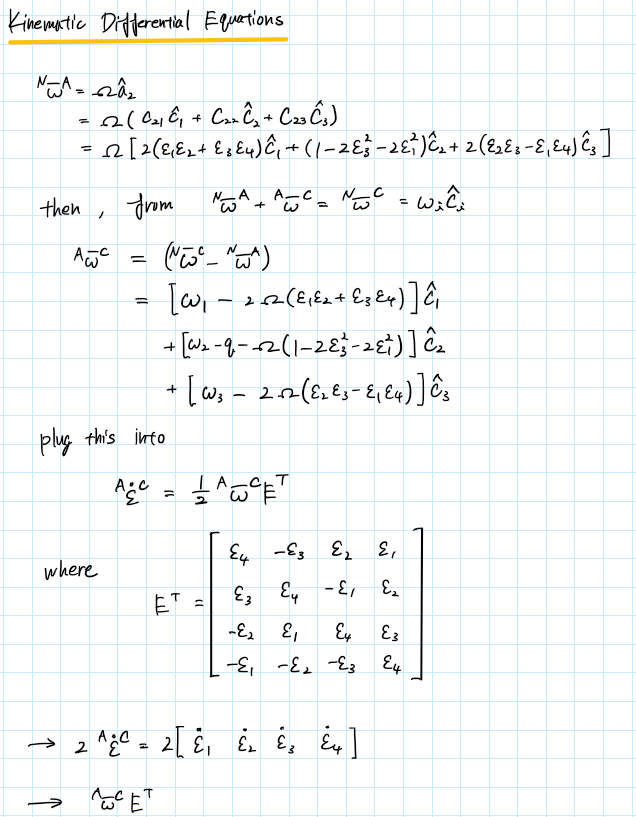 Kinematic Differential Equations
ᴺω̄ᴬ = Ωâ₂
= Ω(C₂₁Ĉ₁ + C₂₂Ĉ₂ + C₂₃Ĉ₃)
= Ω[2(ε₁ε₂ + ε₃ε₄)Ĉ₁ + (1-2ε₃²-2ε₁²)Ĉ₂ + 2(ε₂ε₃-ε₁ε₄)Ĉ₃]
then, from ᴺω̄ᴬ + ᴬω̄ᶜ = ᴺω̄ᶜ = ωᵢĈᵢ
ᴬω̄ᶜ = (ᴺω̄ᶜ - ᴺω̄ᴬ)
= [ω₁ - 2Ω(ε₁ε₂ + ε₃ε₄)]Ĉ₁
+ [ω₂-q-Ω(1-2ε₃²-2ε₁²)]Ĉ₂
+ [ω₃ - 2Ω(ε₂ε₃-ε₁ε₄)]Ĉ₃
plug this into
ᴬε̇ᶜ = 1/2 ᴬω̄ᶜEᵀ
where
Eᵀ =
ε₄ -ε₃ ε₂ ε₁
ε₃ ε₄ -ε₁ ε₂
-ε₂ ε₁ ε₄ ε₃
-ε₁ -ε₂ -ε₃ ε₄
→ 2 ᴬε̇ᶜ = 2[ε̇₁ ε̇₂ ε̇₃ ε̇₄]
→ ᴬω̄ᶜ Eᵀ